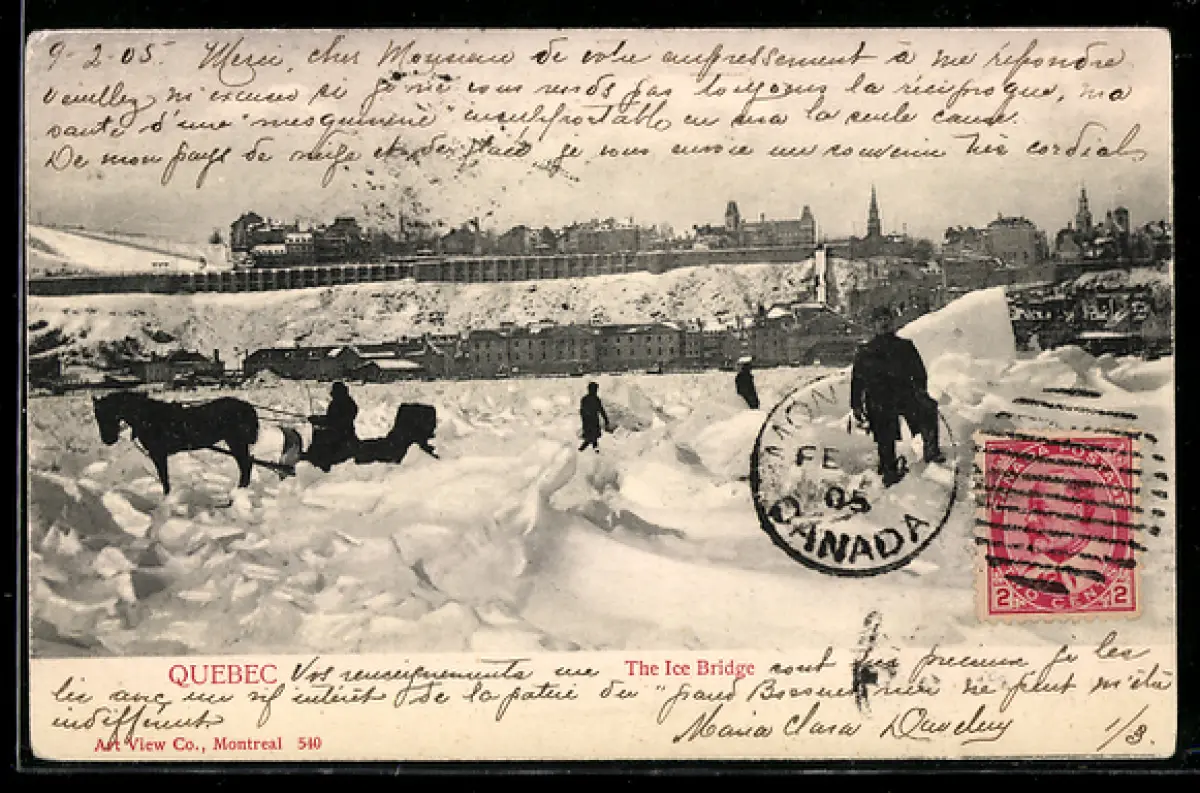 9-2-05. Merci, cher Monsieur de votre empressement à me répondre
veuillez m'excuser si je ne vous rends pas toujours la réciproque, ma
santé d'une "mesquinerie" inconfortable en est la seule cause.
De mon pays de neige et de glace je vous envoie un souvenir très cordial
MON
FE
05
CANADA
CANADA POSTAGE
2 2
CENTS
QUEBEC Vos renseignements me The Ice Bridge sont précieux je les
lis avec un vif intérêt de la patrie du "grand Bossuet" rien ne peut m'être
indifférent
Maria Clara 1/3.
Art View Co., Montreal 540